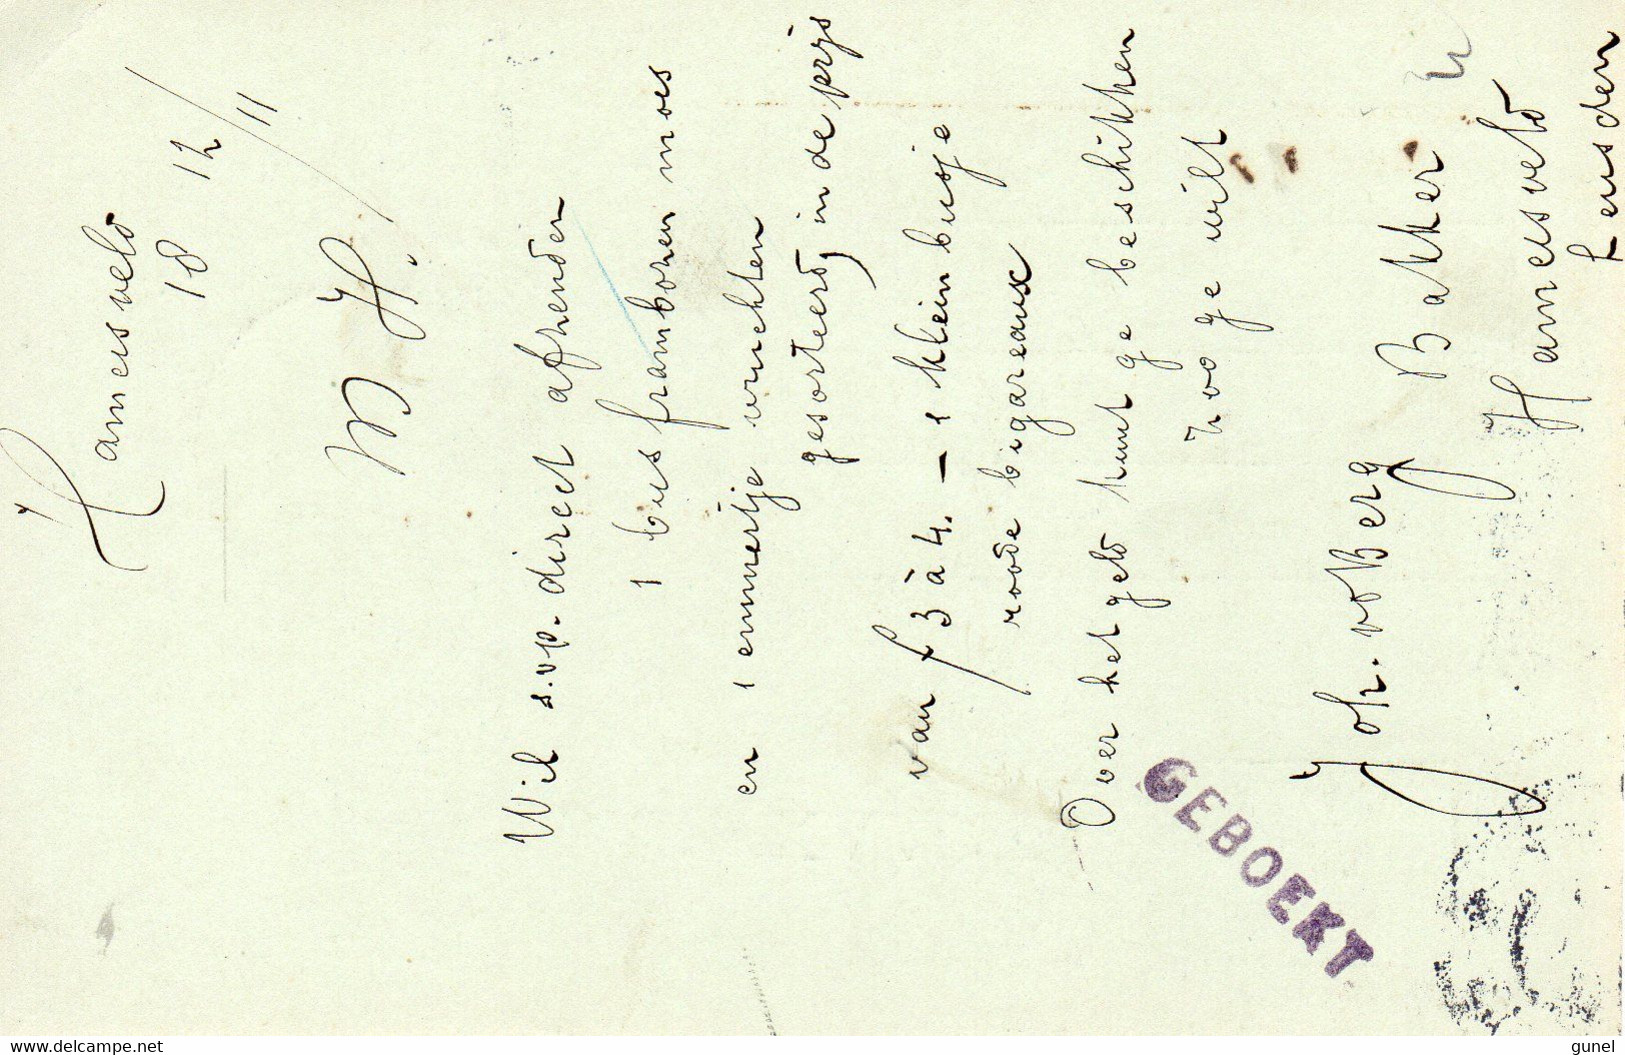 Hamersveld
18 12/11
M H.
Wil s.v.p. direct afzenden
1 bus frambozen moes
en 1 emmertje vruchten
gesorteerd, in de prijs
van f 3 à 4. – 1 klein busje
roode bigareaux
Over het geld kunt ge beschikken
zoo ge wilt
Joh. vd Berg Bakker
Hamersveld
Leusden
GEBOEKT
www.delcampe.net
gunel